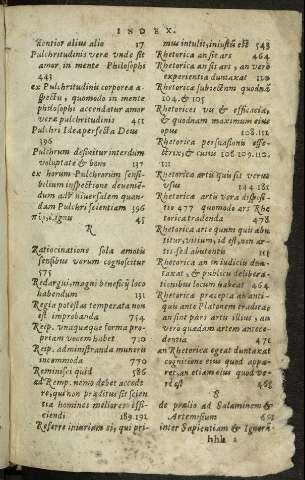 INDEX.
stentior alius alio 37
Pulchritudinis veræ unde sit
amor in mente Philosophi
443
ex Pulchritudinis corporeæ a-
spectu, quomodo in mente
philosophi accendatur amor
veræ pulchritudinis 451
Pulchri Idea perfecta Deus
396
Pulchrum definitur interdum
voluptate & bono 137
ex horum Pulchrorum sensi-
bilium inspectione deuenien-
dum ad Vniuersalem quan-
dam Pulchri scientiam 396
45
R
Ratiocinationis sola amotis
sensibus verum cognoscitur
575
Redargui, magni beneficij loco
habendum 131
Regia potestas temperata non
est improbanda 754
Reip. vnaquæque forma pro-
priam vocem habet 710
Reip. administranda munera
incommoda 770
Reminisci quid 586
ad Remp. nemo debet accede-
re, qui non præditus sit scien-
tia homines meliores effi-
ciendi 189.191
Referre iniuriam si, qui pri-
mus intulit, iniustũ est 548
Rhetorica an sit ars 464
Rhetorica an sit ars, an vero
experientia duntaxat 110
Rhetoricæ subiectum quodnã
104. & 105
Rhetorices vis & efficacia,
& quodnam maximum eius
opus 108.111
Rhetorica persuasionis effe-
ctrix; & cuius 108.109.110.
111
Rhetorica artis quis sit verus
vsus 144.181
Rhetoricæ artis vera disposi-
tio 477 quomodo ars Rhe
torica tradenda 478
Rhetorica arte quum quis abu
titur, vitium, id est, non ar-
tis sed abutentis 111
Rhetorica an in iudiciis dun-
taxat, & publicis delibera-
tionibus locum habeat 464
Rhetorica præcepta an anti-
qui ante Platonem tradita,
an sint pars artis illius, an
vero quædam artem antece-
dentia 471
an Rhetorica egeat duntaxat
cognitione eius quod appa-
ret, an etiam eius quod ve-
rè est 465
S
de prælio ad Salaminem &
Artemisium 651
inter Sapientiam & Ignorã
hhh 2